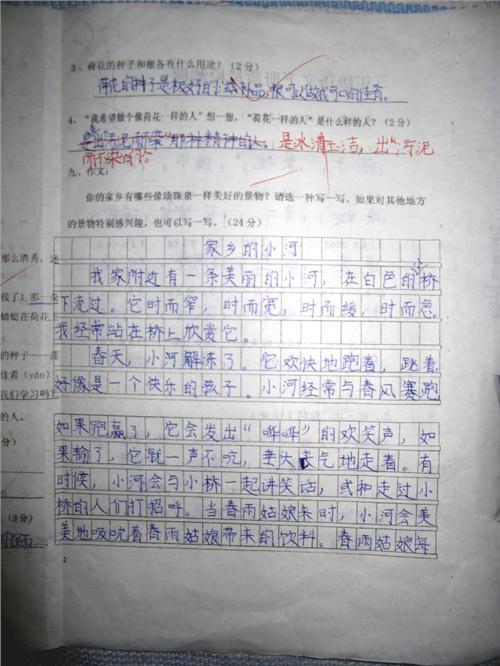 3、荷花的种子和根各有什么用途？（2分）
荷花的种子是极好的小结补品,根可以做成可口的佳肴。
4、“我希望做个像荷花一样的人”想一想，“荷花一样的人”是什么样的人？（2分）
是出污泥而不染那种精神的人。是冰清玉洁，出污泥
而不染
九、作文：
你的家乡有哪些像珍珠泉一样美好的景物？请选一种写一写。如果对其他地方
的景物特别感兴趣，也可以写一写。（24分）
家乡的小河
那么清秀，迷
我家附近有一条美丽的小河，在白色的小桥
极了！那一朵
下流过。它时而窄，时而宽，时而缓，时而急。
蜻蜓在荷花上
我经常站在桥上欣赏它。
的种子——莲
春天，小河解冻了。它欢快地跑着，跳着，
佳肴（yáo）
好像是一个快乐的孩子。小河经常与春风赛跑
我们学习吗？
的人。
如果跑赢了，它会发出“哗哗”的欢笑声，如
分）
果输了，它就一声不吭，垂头丧气地走着。有
时候，小河会与小桥一起讲笑话，或和走过小
桥的人们打招呼。当春雨姑娘来时，小河会美
（3分）
美地吸吮着春雨姑娘带来的饮料。春雨姑娘每
2